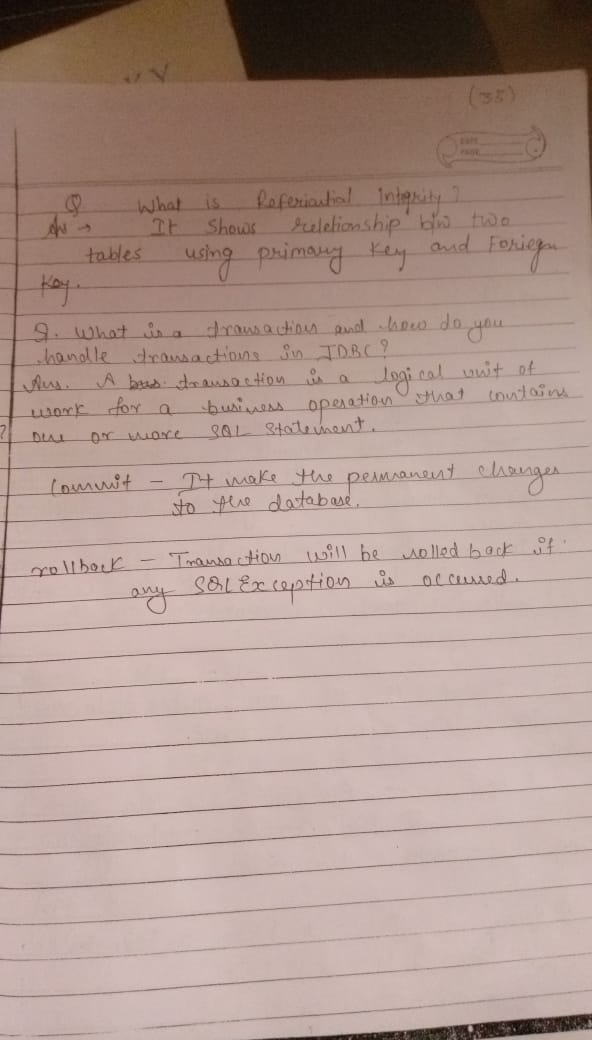 (35)
DATE
PAGE
Q What is Referiantial Integrity?
Ans → It shows reletionship b/w two
tables using primary key and Foriegn
Key.
Q. What is a transaction and how do you
handle transactions in JDBC?
Ans. A bus. transaction is a logical unit of
work for a business operation that contains
one or more SQL statement.
?
Commit - It make the permanent changes
to the database.
rollback - Transaction will be rolled back if
any SQLException is occurred.